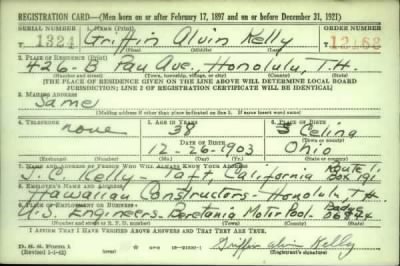 REGISTRATION CARD—(Men born on or after February 17, 1897 and on or before December 31, 1921)
SERIAL NUMBER 1. NAME (Print) ORDER NUMBER
1324 Griffin Alvin Kelly
(First) (Middle) (Last)
2. PLACE OF RESIDENCE (Print)
426-B Pau Ave. Honolulu, T.H.
(Number and street) (Town, township, village, or city) (County) (State)
[THE PLACE OF RESIDENCE GIVEN ON THE LINE ABOVE WILL DETERMINE LOCAL BOARD
JURISDICTION; LINE 2 OF REGISTRATION CERTIFICATE WILL BE IDENTICAL]
3. MAILING ADDRESS
Same
[Mailing address if other than place indicated on line 2. If same insert word same]
4. TELEPHONE 5. AGE IN YEARS 6. PLACE OF BIRTH
none 38 Celina
DATE OF BIRTH (Town or county)
12-26-1903 Ohio
(Exchange) (Number) (Mo.) (Day) (Yr.) (State or country)
7. NAME AND ADDRESS OF PERSON WHO WILL ALWAYS KNOW YOUR ADDRESS
J. C. Kelly - Taft California Route Box 191
8. EMPLOYER'S NAME AND ADDRESS
Hawaiian Constructors - Honolulu T.H.
9. PLACE OF EMPLOYMENT OR BUSINESS
U.S. Engineers - Beretania Motor Pool - Badge 06874
(Number and street or R. F. D. number) (Town) (County) (State)
I AFFIRM THAT I HAVE VERIFIED ABOVE ANSWERS AND THAT THEY ARE TRUE.
D. S. S. Form 1
(Revised 1-1-42) (over) Griffin Alvin Kelly
(Registrant's signature)